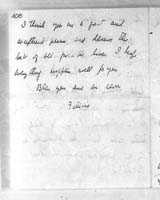 108
I think you are a fair and
excellent person and deserve the
best of all possible lives. I hope
everything happens well for you.
Bless you and
Felicia